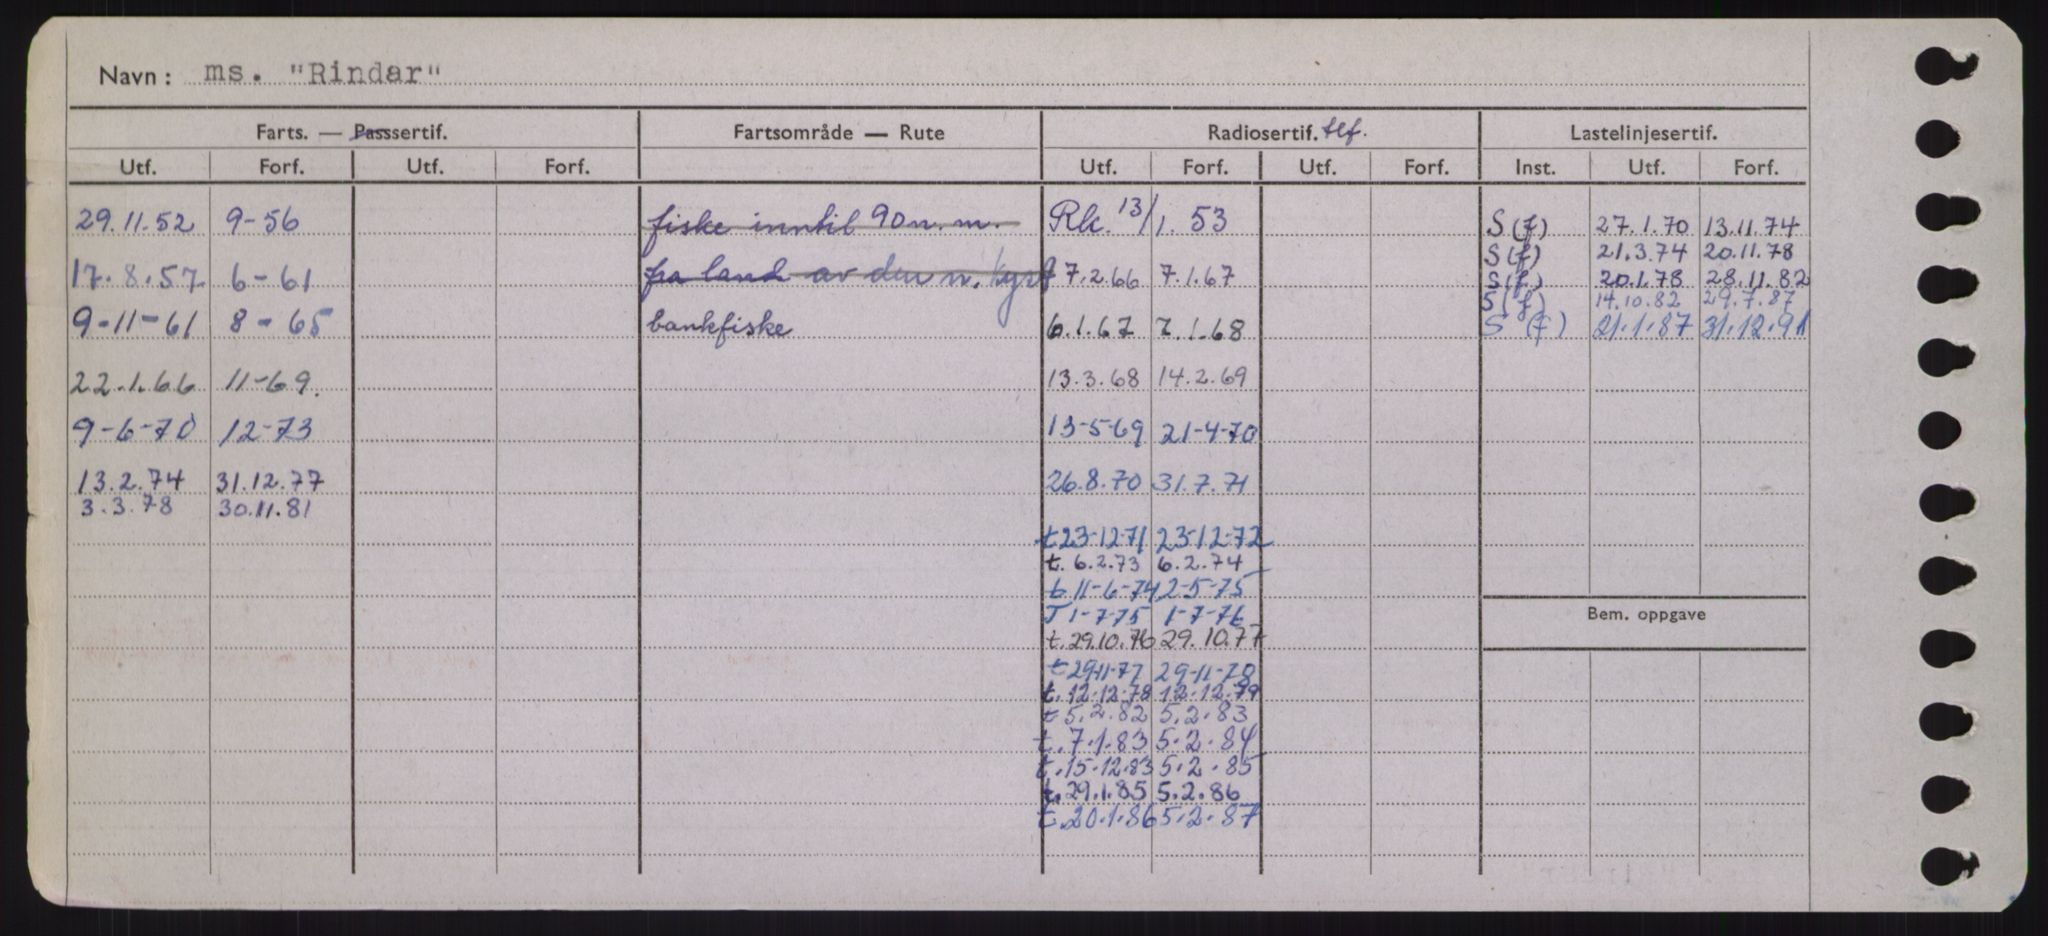 Navn: ms. "Rindar"
Farts. — Passsertif. Fartsområde — Rute Radiosertif. tlf. Lastelinjesertif.
Utf. Forf. Utf. Forf. Utf. Forf. Utf. Forf. Inst. Utf. Forf.
29.11.52 9-56 fiske inntil 90 n.m. Rk. 13/1. 53 S(f) 27.1.70 13.11.74
S(f) 21.3.74 20.11.78
17.8.57 6-61 fra land av den n. kyst 7.2.66 7.1.67 S(f) 20.1.78 28.11.82
S(f) 14.10.82 29.7.87
9-11-61 8-65 bankfiske 6.1.67 7.1.68 S(f) 21.1.87 31.12.91
22.1.66 11-69. 13.3.68 14.2.69
9-6-70 12-73 13-5-69 21-4-70
13.2.74 31.12.77 26.8.70 31.7.71
3.3.78 30.11.81
t 23-12-71 23-12-72
t. 6.2.73 6.2.74
t 11-6-74 2-5-75
T 1-7-75 1-7-76
Bem. oppgave
t. 29.10.76 29.10.77
t 29-11-77 29-11-78
t. 12.12.78 12.12.79
t 5.2.82 5.2.83
t. 7.1.83 5.2.84
t. 15.12.83 5.2.85
t. 29.1.85 5.2.86
t. 20.1.86 5.2.87